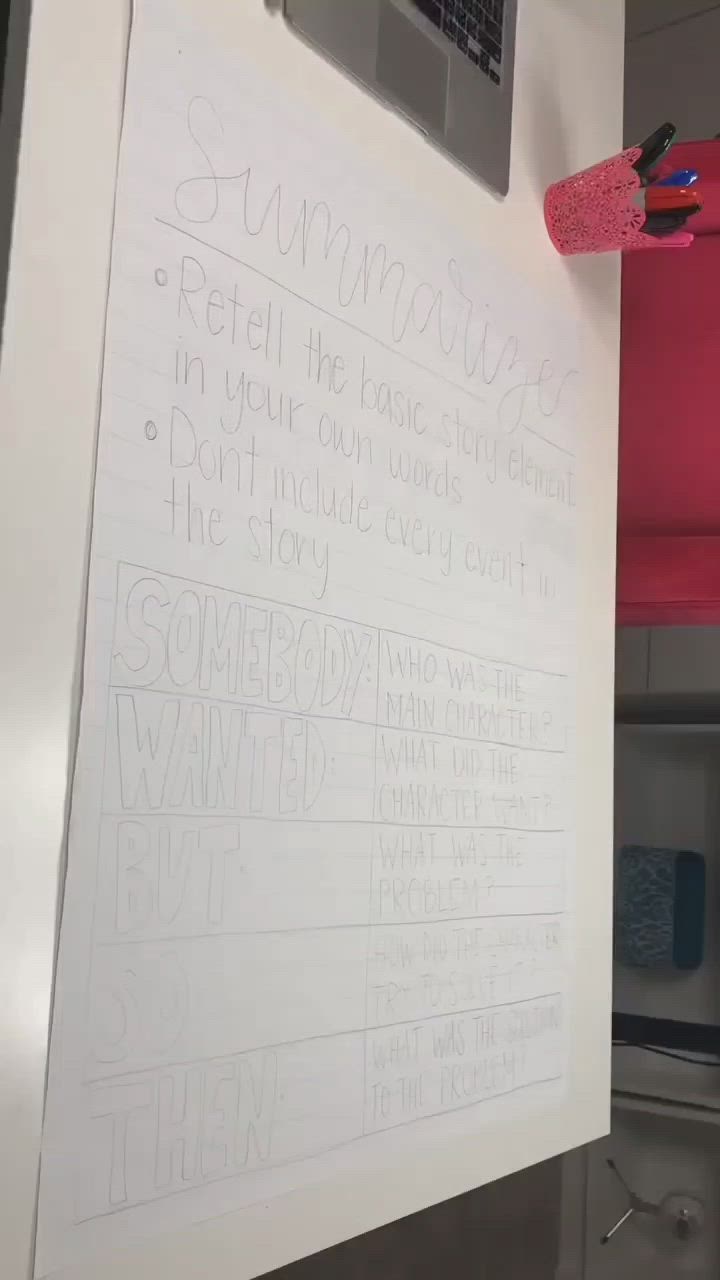 Summarizer
Retell the basic story element
in your own words
Dont include every event in
the story
SOMEBODY:
WHO WAS THE
MAIN CHARACTER?
WANTED:
WHAT DID THE
CHARACTER WANT?
BUT:
WHAT WAS THE
PROBLEM?
SO
HOW DID THE CHARACTER
TRY TO SOLVE IT?
THEN:
WHAT WAS THE SOLUTION
TO THE PROBLEM?